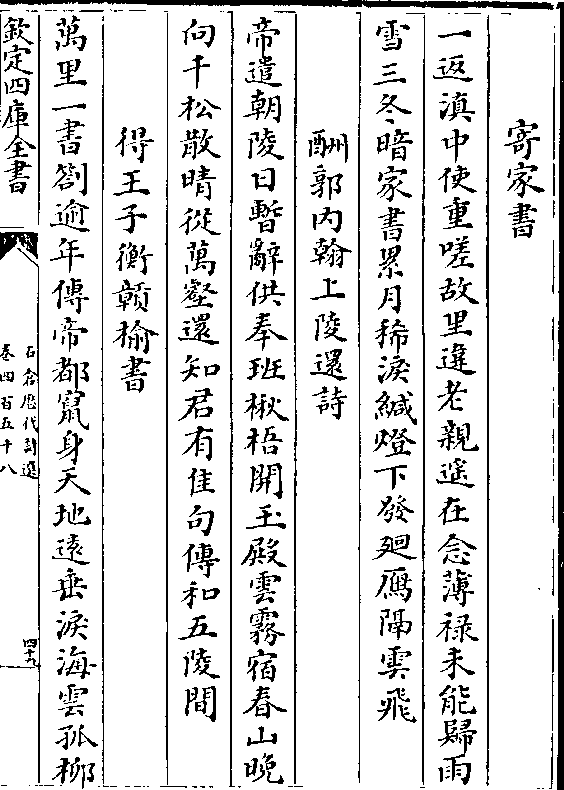 寄家書
一返滇中使重嗟故里違老親遥在念薄禄未能歸雨
雪三冬暗家書累月稀淚緘燈下發廻鴈隔雲飛
酬郭内翰上陵還詩
帝遣朝陵日暫辭供奉班楸梧開玉殿雲霧宿春山晚
向千松散晴從萬壑還知君有佳句傳和五陵間
得王子衡贛榆書
萬里一書劄逾年傳帝都竄身天地遠垂淚海雲孤柳
欽定四庫全書
石倉歴代詩選
卷四百五十八
四十九